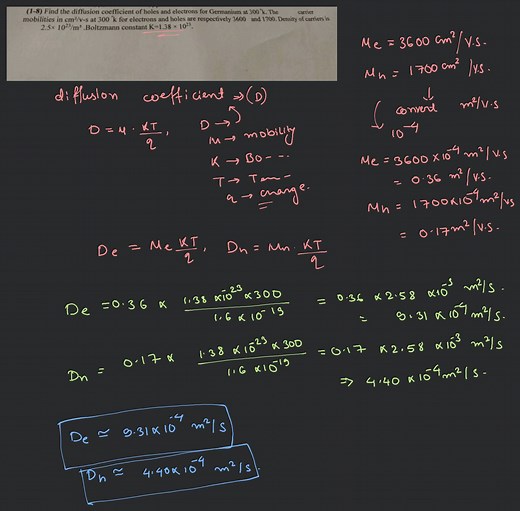 (1-8) Find the diffusion coefficient of holes and electrons for Germanium at 300 °k. The carrier
mobilities in cm²/v-s at 300 °k for electrons and holes are respectively 3600 and 1700. Density of carriers is
2.5× 10¹⁹/m³ .Boltzmann constant K=1.38 × 10²³.
Me = 3600 cm²/v.s.
Mn = 1700 cm² /v.s.
↓
convert m²/v.s
10⁻⁴
Me = 3600 × 10⁻⁴ m²/v.s
= 0.36 m²/v.s.
Mn = 1700×10⁻⁴ m²/vs
= 0.17 m²/v.s.
diffusion coefficient → (D)
D = μ · KT/q ,
D →
M → mobility
K → Bo - - -
T → Tem - -
q → charge.
De = Me KT/q , Dn = Mn · KT/q
De = 0.36 × 1.38 ×10⁻²³ × 300 / 1.6 × 10⁻¹⁹ = 0.36 × 2.58 × 10⁻³ m²/s.
= 9.31 × 10⁻⁴ m²/s.
Dn = 0.17 × 1.38 × 10⁻²³ × 300 / 1.6 × 10⁻¹⁹ = 0.17 × 2.58 × 10⁻³ m²/s
⇒ 4.40 × 10⁻⁴ m²/s.
De ≃ 9.31 × 10⁻⁴ m²/s
Dn ≃ 4.40 × 10⁻⁴ m²/s.